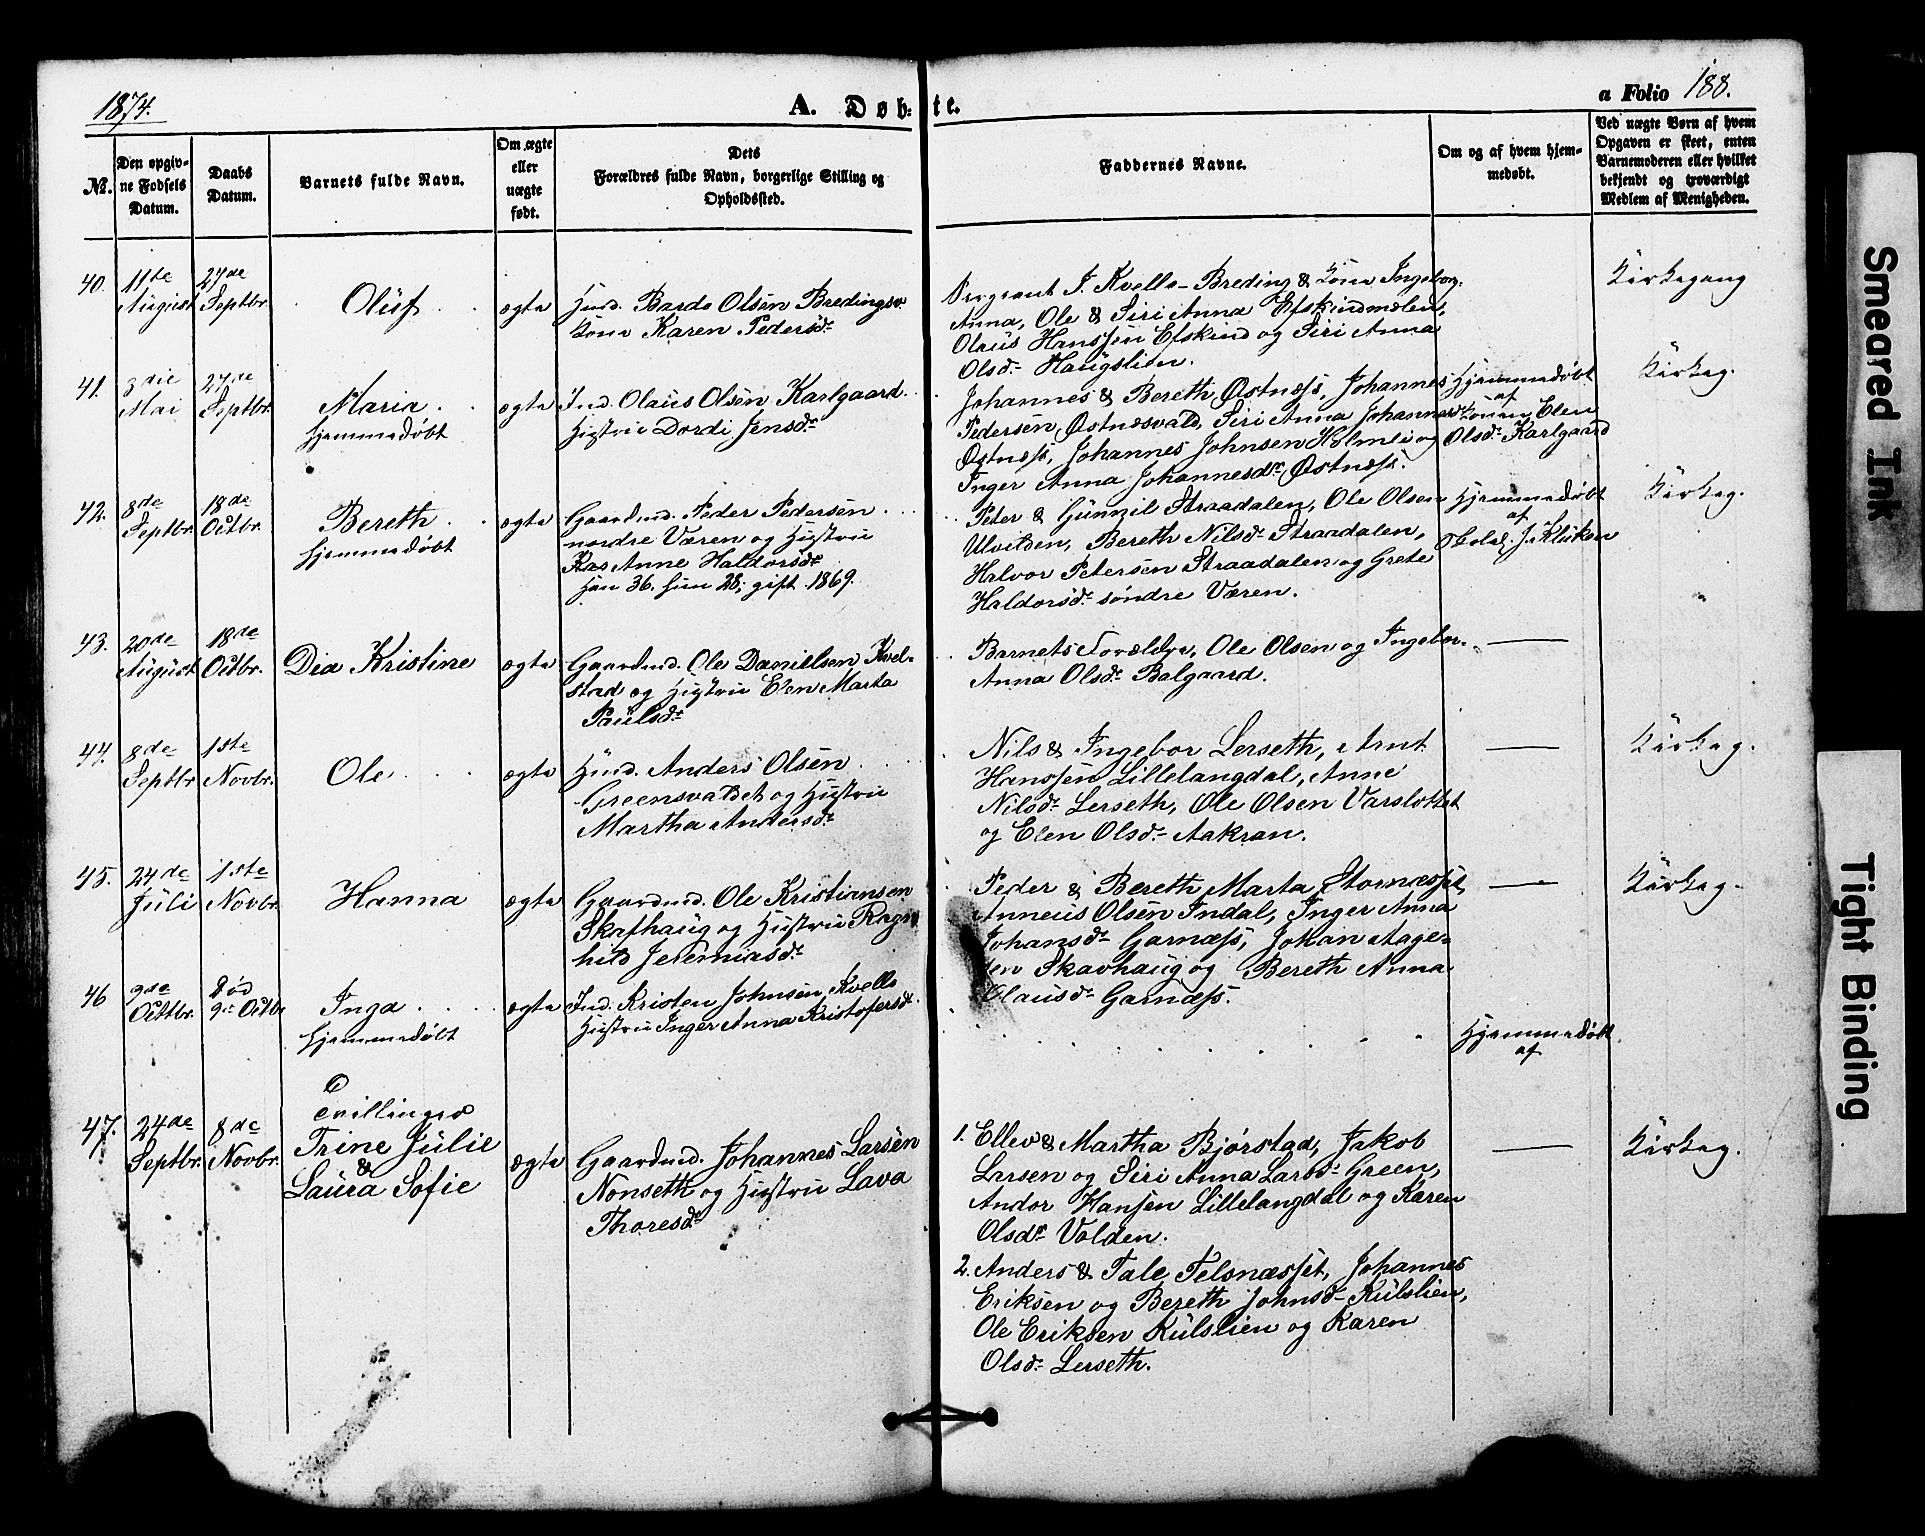 1874.
A. Døb-te.
a Folio 188.
No.
Den opgiv-
ne Fødsels
Datum.
Daabs
Datum.
Barnets fulde Navn.
Om ægte
eller
uægte
født.
Dets
Forældres fulde Navn, borgerlige Stilling og
Opholdssted.
Faddernes Navne.
Om og af hvem hjem-
medøbt.
Ved uægte Børn af hvem
Opgaven er skeet, enten
Barnemoderen eller hvilket
bekjendt og troværdigt
Medlem af Menigheden.
40.
11te
August
27de
Septbr.
Oluf
ægte
Husmd. Bardo Olsen Bredingsv.
Kone Karen Pedersdr
Sergeant J. Kvello-Breding & Kone Ingebor-
Anna, Ole & Siri Anna Efskindmælen,
Olaus Hanssen Efskind og Siri Anna
Olsdr Haugslien.
Kirkegang
41.
3die
Mai
27de
Septbr.
Maria
hjemmedøbt
ægte
Ind. Olaus Olsen Karlgaard
Hustru Dordi Jensdr
Johannes & Bereth Østnæss, Johannes
Pedersen Østnæsvald, Siri Anna Johannesdr
Østnæss, Johannes Johnsen Holmli og
Inger Anna Johannesdr Østnæss.
Hjemmedøbt
af
Konen Elen
Olsdr Karlgaard
Kirkeg.
42.
8de
Septbr.
18de
Octbr.
Bereth
hjemmedøbt
ægte
Gaardmd. Peder Pedersen
nordre Væren og Hustru
Anne Haldorsdr
Han 36. hun 28; gift 1869.
Peter & Gunnil Straadalen, Ole Olsen
Ulvilden, Bereth Nilsdr Straadalen,
Halvor Petersen Straadalen og Grete
Haldorsdr søndre Væren.
Hjemmedøbt
af
Skolel. J. Kluken
Kirkeg.
43.
20de
August
18de
Octbr.
Dia Kristine
ægte
Gaardmd. Ole Danielsen Kvel-
stad og Hustru Elen Marta
Paulsdr
Barnets Forældre, Ole Olsen og Ingebor-
Anna Olsdr Balgaard.
—
44.
8de
Septbr.
1ste
Novbr.
Ole
ægte
Husmd. Anders Olsen
Greensvaldet og Hustru
Martha Andersdr
Nils & Ingebor Lerseth, Arnt
Hanssen Lillelangdal, Anne
Nilsdr Lerseth, Ole Olsen Varslottet
og Elen Olsdr Aakran.
—
Kirkeg.
45.
24de
Juli
1ste
Novbr.
Hanna
ægte
Gaardmd. Ole Kristiansen
Skafhaug og Hustru Ragn-
hild Jeremiasdr
Peder & Bereth Marta Stornæsset,
Anneus Olsen Indal, Inger Anna
Johansdr Garnæss, Johan Aage-
sen Skavhaug og Bereth Anna
Olausdr Garnæss.
—
Kirkeg.
46
9de
Octbr.
Død
9de Octbr
Inga
hjemmedøbt
ægte
Ind. Kristen Johnsen Kvello
Hustru Inger Anna Kristofersdr
Hjemmedøbt
af
47.
24de
Septbr.
8de
Novbr.
Tvillinger
Trine Julie
&
Laura Sofie
ægte
Gaardmd. Johannes Larsen
Nonseth og Hustru Lava
Thoresdr
1. Ellev & Martha Bjørstad, Jakob
Larsen og Siri Anna Larsdr Green,
Andor Hansen Lillelangdal og Karen
Olsdr Volden.
2. Anders & Tale Felsnæsset, Johannes
Eriksen og Bereth Johnsdr Kulslien,
Ole Eriksen Kulslien og Karen
Olsdr Lerseth.
—
Kirkeg.
Smeared Ink
Tight Binding